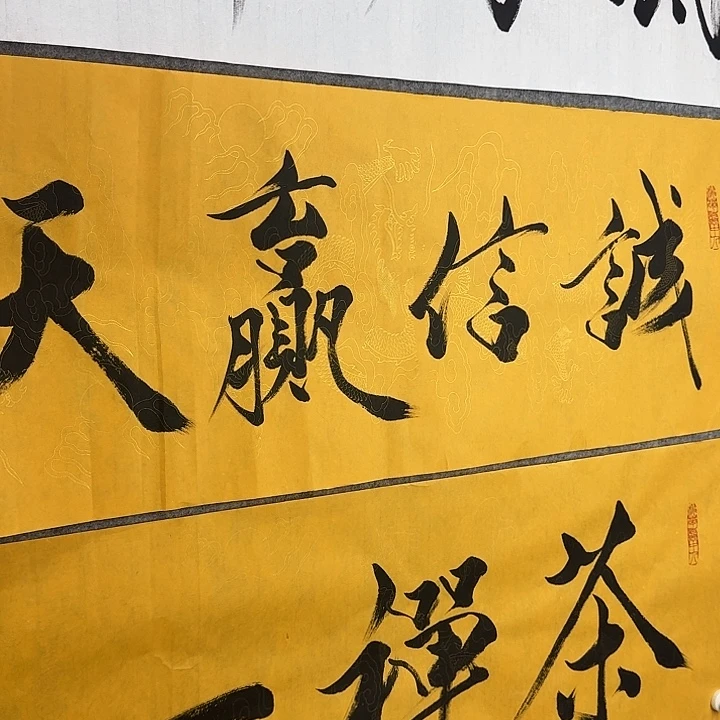 誠信贏天
茶禪一